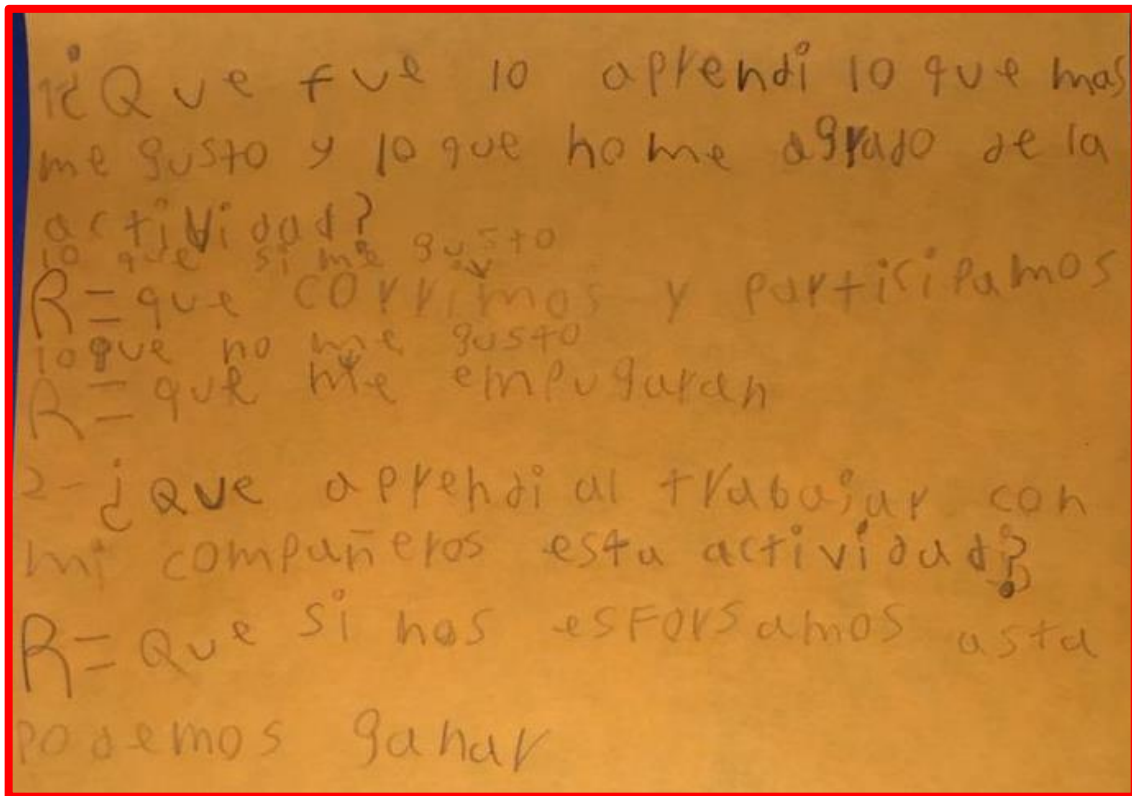 1¿Que fue lo aprendi lo que mas
me gusto y lo que no me agrado de la
actividad?
lo que si me gusto
R= que corrimos y partisipamos
lo que no me gusto
R= que me empugaran
2-¿Que aprendi al trabajar con
mi compañeros esta actividad?
R= Que si nos esforsamos asta
podemos ganar